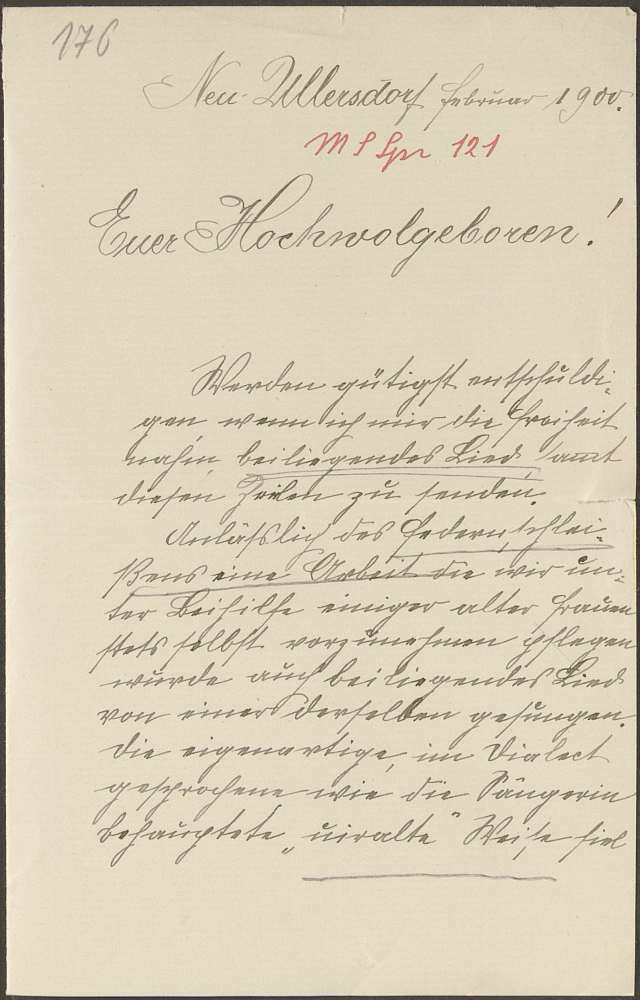 176
Neu-Ullersdorf Februar 1900.
121
Euer Hochwolgeboren!
Werden gütigst entschuldi-
gen, wenn ich mir die Freiheit
nahm beiliegendes Lied, samt
diesen Zeilen zu senden.
Anläßlich des Federnschlei-
ßens eine Arbeit die wir un-
ter Beihilfe einiger alter Frauen
stets selbst vorzunehmen pflegen
wurde auch beiliegendes Lied
von einer derselben gesungen.
Die eigenartige, im Dialect
gesprochene wie die Sängerin
behauptete „uralte" Weise fiel